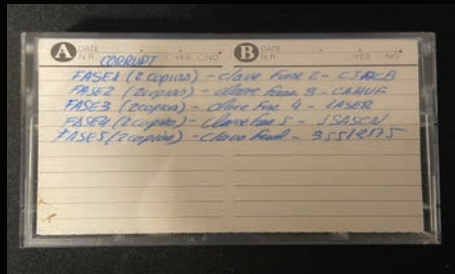 A DATE N.R. YES NO B DATE N.R. YES NO
CORRUPT
FASE1 (2 copias) - clave Fase 2 -
FASE2 (2 copias) - clave Fase 3 -
FASE3 (2 copias) - clave Fase 4 - LASER
FASE4 (2 copias) - clave Fase 5 -
FASE5 (2 copias) - Clave final -